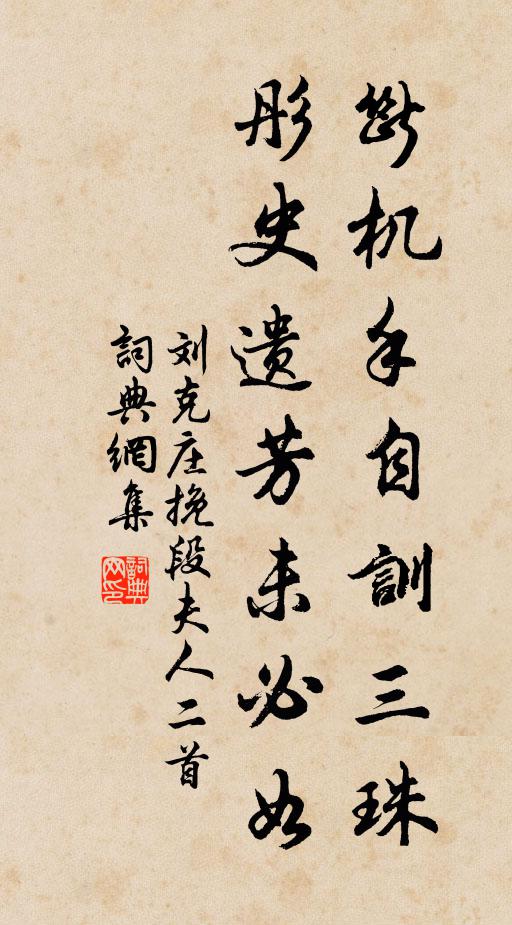 断机手自训三珠
彤史遗芳未必如
刘克庄挽段夫人二首
詞典網集
詞典网印